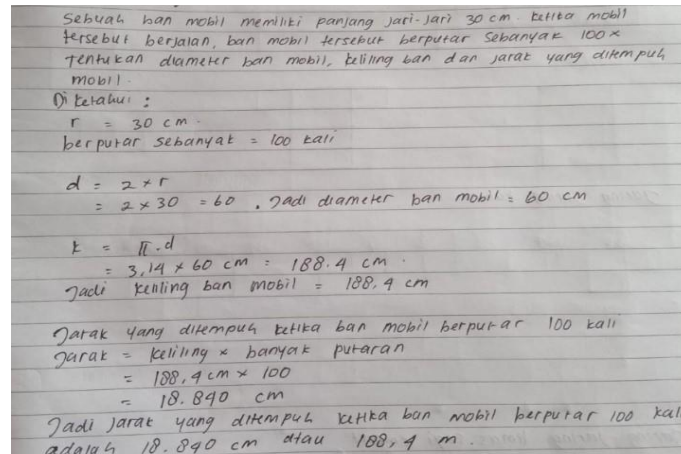 Sebuah ban mobil memiliki panjang jari-jari 30 cm. ketika mobil
tersebut berjalan, ban mobil tersebut berputar sebanyak 100×
Tentukan diameter ban mobil, keliling ban dan jarak yang ditempuh
mobil.
Diketahui :
r = 30 cm.
berputar sebanyak = 100 kali
d = 2 × r
= 2 × 30 = 60 . Jadi diameter ban mobil = 60 cm
k = π.d
= 3,14 × 60 cm = 188.4 cm.
Jadi keliling ban mobil = 188,4 cm
Jarak yang ditempuh ketika ban mobil berputar 100 kali
Jarak = keliling × banyak putaran
= 188,4 cm × 100
= 18.840 cm
Jadi jarak yang ditempuh ketika ban mobil berputar 100 kal
adalah 18.840 cm atau 188,4 m.